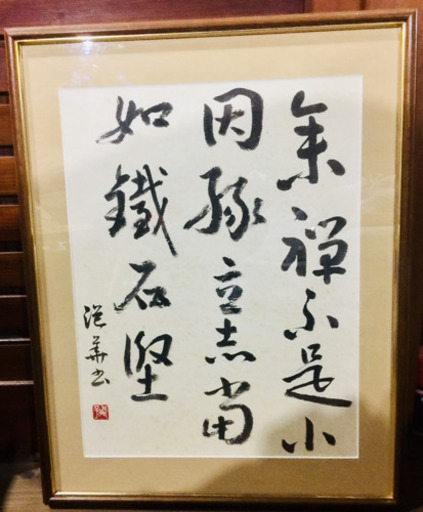 參禪不是小
因緣立志當
如鐵石堅
華書